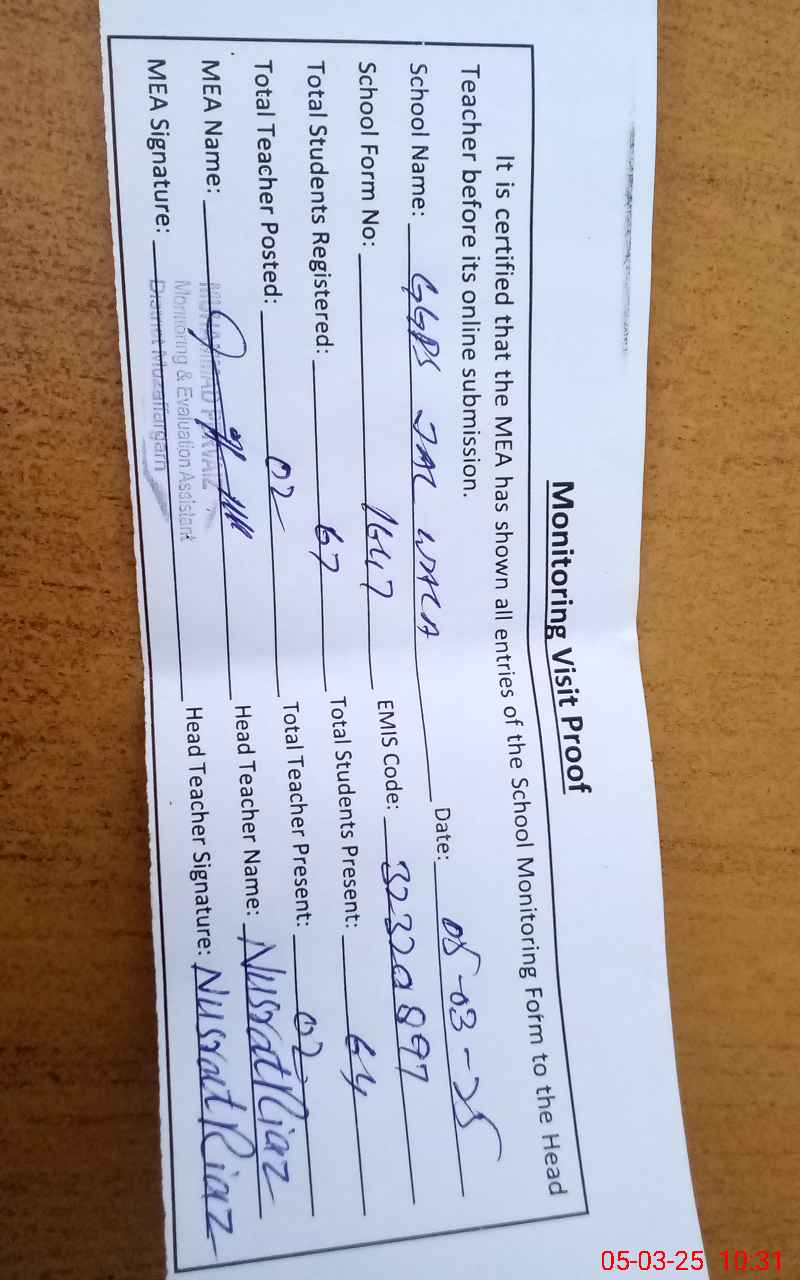 Monitoring Visit Proof
It is certified that the MEA has shown all entries of the School Monitoring Form to the Head
Teacher before its online submission.
School Name: GGPS JAL WALA Date: 05-03-25
School Form No: 1647 EMIS Code: 32320897
Total Students Registered: 67 Total Students Present: 64
Total Teacher Posted: 02 Total Teacher Present: 02
MEA Name: Head Teacher Name: Nusrat Riaz
MUHAMMAD PARVAIZ
Monitoring & Evaluation Assistant
District Muzaffargarh
MEA Signature: Head Teacher Signature: Nusrat Riaz
05-03-25 10:31